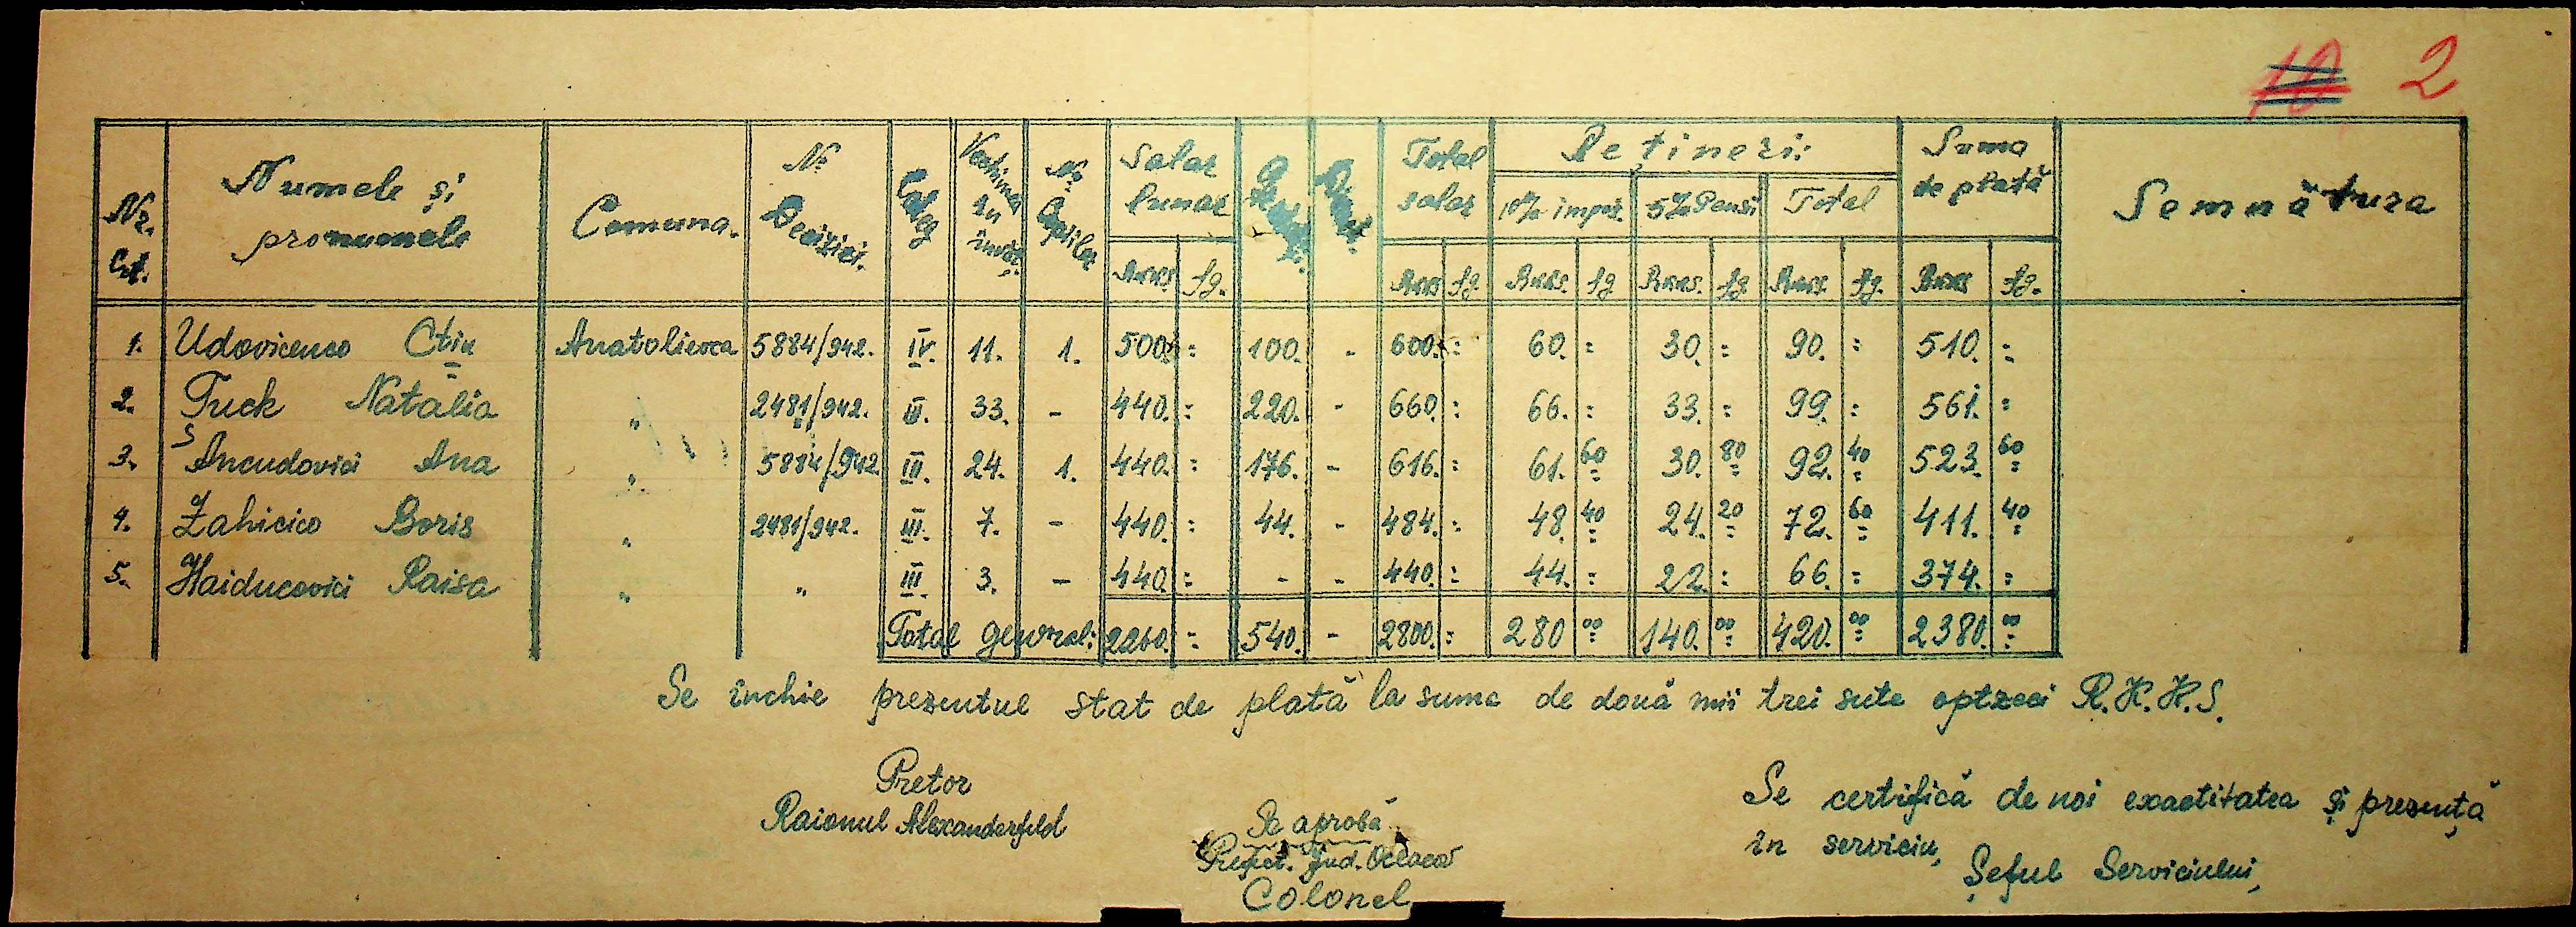 10 2
Nr. Crt. Numele și pronumele Comuna. Nr. Deciziei. Categ Vechimea în învăț. Nr. Copiilor Salar lunar Total salar Rețineri: Suma de plată Semnătura
10% impoz. 5% Pensi Total
RKKS fg. RKKS fg RKKS. fg RKKS. fg RKKS. fg. RKKS fg.
1. Udovicenco Ctin Anatolievca 5884/942. IV. 11. 1. 500. = 100. - 600. = 60. = 30. = 90. = 510. =
2. Tuck Natalia " 2481/942. III. 33. - 440. = 220. - 660. = 66. = 33. = 99. = 561. =
3. Ancudovici Ana " 5884/942 III. 24. 1. 440. = 176. - 616. = 61. 60 30. 80 92. 40 523. 60
4. Zahicico Boris " 2481/942. III. 7. - 440. = 44. - 484. = 48. 40 24. 20 72. 60 411. 40
5. Haiducovici Raisa " " III. 3. - 440. = - - 440. = 44. = 22. = 66. = 374. =
Total general: 2260. = 540. - 2800. = 280 00 140. 00 420. 00 2380. 00
Se închie prezentul stat de plată la suma de două mii trei sute optzeci R.K.K.S.
Pretor
Raionul Alexanderfeld
Se aprobă
Prefect. Jud. Oceacov
Colonel
Se certifică de noi exactitatea și prezență
în serviciu,
Șeful Serviciului,